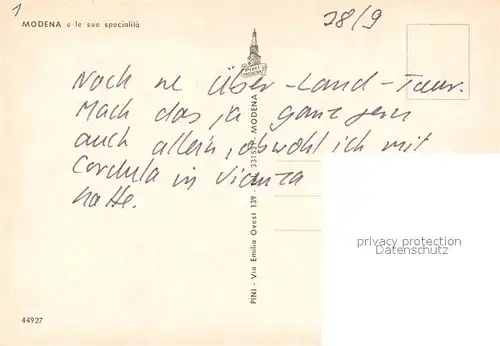 1
28/9
MODENA e le sue specialità
Noch ne Über-Land-Tour.
Mach das ja ganz gern
auch allein, obwohl ich mit
Cordula in Vicenza
hatte.
PINI - Via Emilia Ovest 139 - 331521 - MODENA
privacy protection
Datenschutz
44927